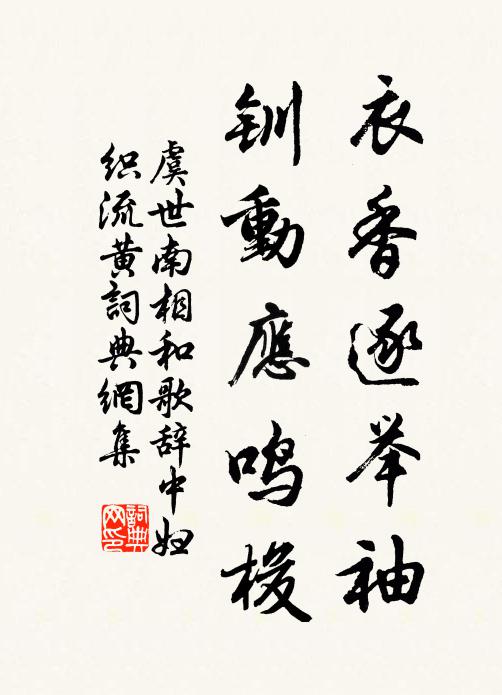 衣香逐举袖
釧動應鸣梭
虞世南相和歌辞中妇
织流黄詞典網集
詞典
网印